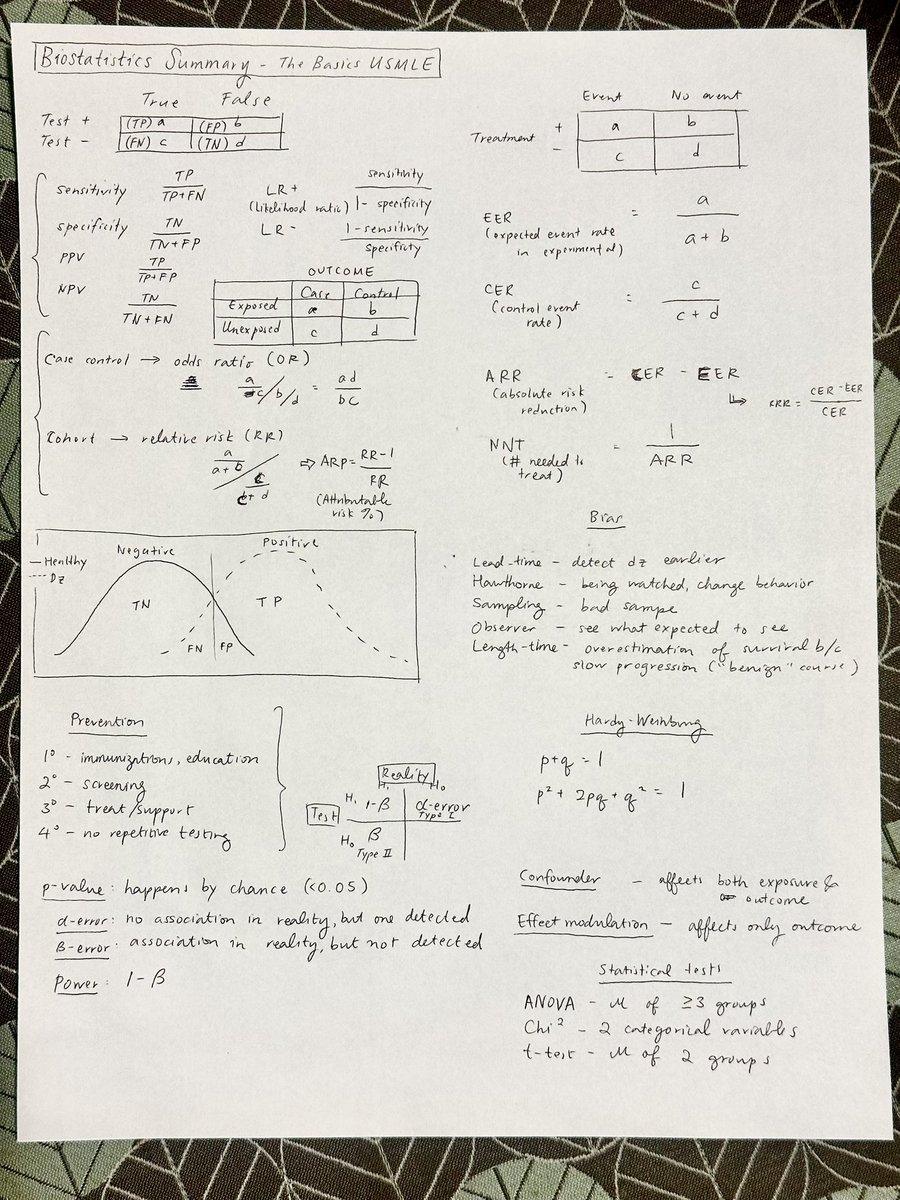 Biostatistics Summary - The Basics USMLE
True False
Test + (TP) a (FP) b
Test - (FN) c (TN) d
sensitivity TP / TP+FN
specificity TN / TN+FP
PPV TP / TP+FP
NPV TN / TN+FN
LR+ sensitivity / 1- specificity
(likelihood ratio)
LR- 1-sensitivity / specificty
OUTCOME
Case Control
Exposed a b
Unexposed c d
Case control → odds ratio (OR)
a/c / b/d = ad / bc
Cohort → relative risk (RR)
a / a+b / c / c+d ⇒ ARP = RR-1 / RR
(Attributable
risk %)
— Healthy
--- Dz
Negative Positive
TN TP
FN FP
Prevention
1° - immunizations, education
2° - screening
3° - treat/support
4° - no repetitive testing
Reality
H₁ H₀
Test H₁ 1-β α-error
Type I
H₀ β
Type II
p-value: happens by chance (<0.05)
α-error: no association in reality, but one detected
β-error: association in reality, but not detected
Power: 1-β
Event No event
Treatment + a b
- c d
EER = a / a+b
(expected event rate
in experimental)
CER = c / c+d
(control event
rate)
ARR = CER - EER
(absolute risk
reduction)
↳ RRR = CER-EER / CER
NNT = 1 / ARR
(# needed to
treat)
Bias
Lead-time - detect dz earlier
Hawthorne - being watched, change behavior
Sampling - bad sampe
Observer - see what expected to see
Length-time - overestimation of survival b/c
slow progression ("benign" course)
Hardy-Weinburg
p+q = 1
p² + 2pq + q² = 1
Confounder - affects both exposure &
outcome
Effect modulation - affects only outcome
Statistical tests
ANOVA - μ of ≥3 groups
Chi² - 2 categorical variables
t-test - μ of 2 groups